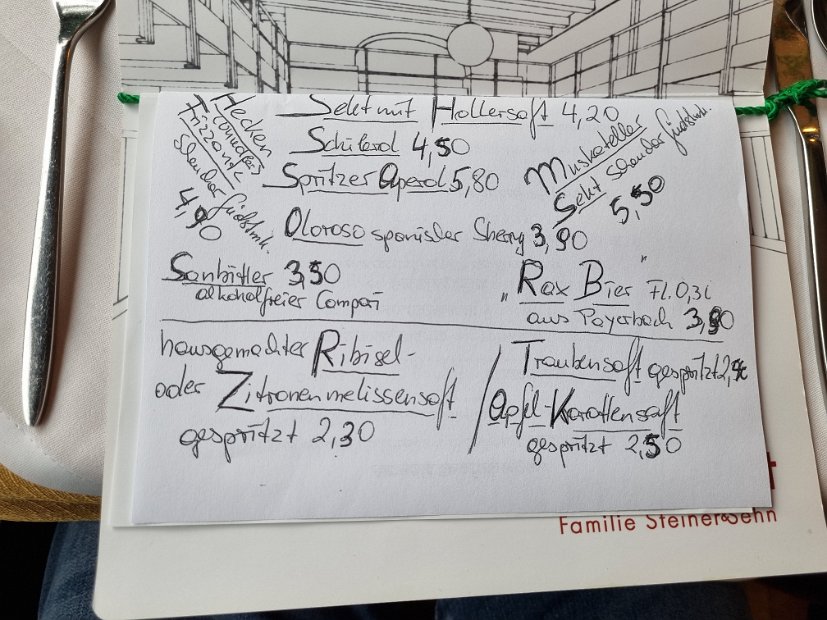 Hecken
Frizzante
4,90
Sekt mit Hollersaft 4,20
Schilerol 4,50
Spritzer Aperol 5,80
Muskateller
Sekt
5,50
Oloroso spanischer Sherry 3,90
Sanbitter 3,50
alkoholfreier Campari
"Rax Bier" Fl. 0,3l
aus Payerbach 3,90
hausgemachter Ribisel-
oder Zitronenmelissensaft
gespritzt 2,30
Traubensaft gespritzt 2,50
Apfel-Karottensaft
gespritzt 2,50
Familie Steiner&Sehn